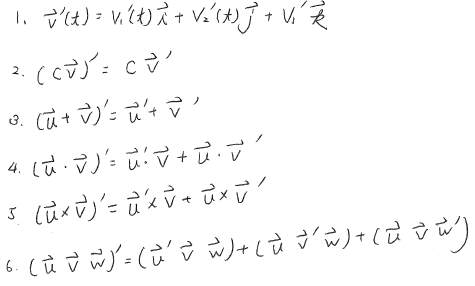 1. v⃗'(t) = v₁'(t) i⃗ + v₂'(t) j⃗ + v₁' k⃗
2. (c v⃗)' = c v⃗'
3. (u⃗ + v⃗)' = u⃗' + v⃗'
4. (u⃗ · v⃗)' = u⃗' · v⃗ + u⃗ · v⃗'
5. (u⃗ × v⃗)' = u⃗' × v⃗ + u⃗ × v⃗'
6. (u⃗ v⃗ w⃗)' = (u⃗' v⃗ w⃗) + (u⃗ v⃗' w⃗) + (u⃗ v⃗ w⃗')